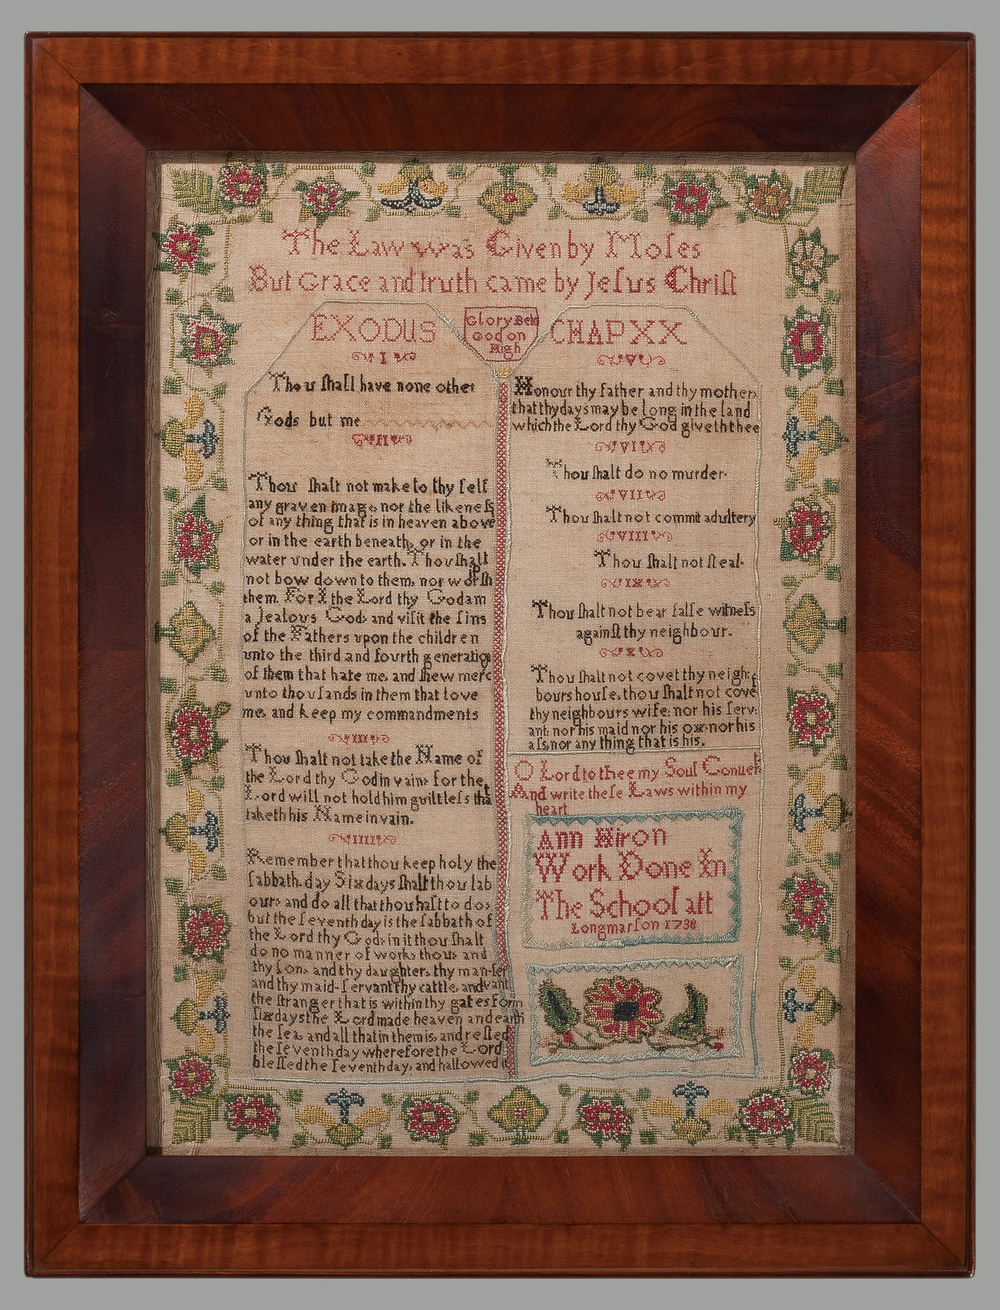 The Law was Given by Moſes
But Grace and truth came by Jeſus Chriſt
Glory Be to
God on
High
EXODUS
I
Thou ſhall have none other
Gods but me
II
Thou ſhalt not make to thy ſelf
any graven image nor the likeneſs
of any thing that is in heaven above
or in the earth beneath, or in the
water under the earth. Thou ſhalt
not bow down to them, nor worſh
them. For I the Lord thy God am
a Jealous God; and viſit the ſins
of the Fathers upon the children
unto the third and fourth generation
of them that hate me, and ſhew merc
unto thouſands in them that love
me, and keep my commandments
III
Thou ſhalt not take the Name of
the Lord thy God in vain: for the
Lord will not hold him guiltleſs tha
taketh his Name in vain.
IIII
Remember that thou keep holy the
ſabbath day Six days ſhalt thou lab
our; and do all that thou haſt to do;
but the ſeventh day is the ſabbath of
the Lord thy God; in it thou ſhalt
do no manner of work; thou; and
thy ſon; and thy daughter; thy man-ſer
and thy maid-ſervant thy cattle, and vant
the ſtranger that is within thy gates form
ſix days the Lord made heaven and earth
the ſea, and all that in them is, and reſted
the ſeventh day wherefore the Lord
bleſſed the ſeventh day; and hallowed it
CHAP XX
V
Honour thy father and thy mother,
that thy days may be long in the land
which the Lord thy God giveth thee
VI
Thou ſhalt do no murder
VII
Thou ſhalt not commit adultery
VIII
Thou ſhalt not ſteal
IX
Thou ſhalt not bear falſe witneſs
againſt thy neighbour.
X
Thou ſhalt not covet thy neigh
bours houſe, thou ſhalt not cove
thy neighbours wife; nor his ſerv:
ant; nor his maid nor his ox; nor his
aſs; nor any thing that is his.
O Lord to thee my Soul Convert
And write theſe Laws within my
heart
Ann Hiron
Work Done In
The School att
Longmarſon 1738